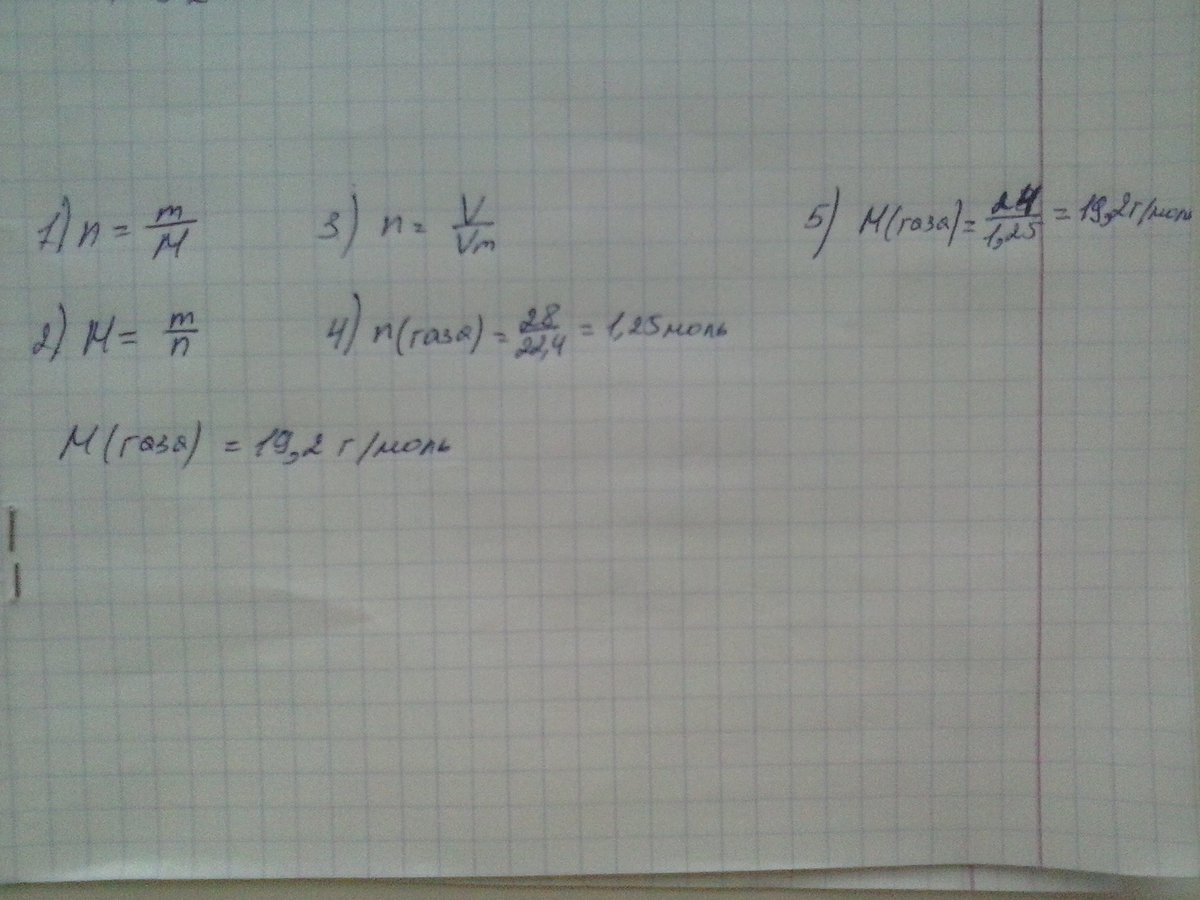 1) n = m/M
2) M = m/n
3) n = V/Vm
4) n(газа) = 28/22,4 = 1,25 моль
5) M(газа) = 24/1,25 = 19,2 г/моль
M(газа) = 19,2 г/моль